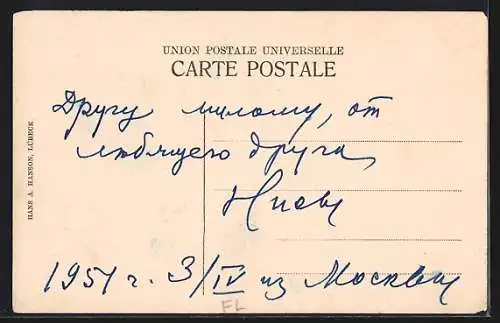 UNION POSTALE UNIVERSELLE
CARTE POSTALE
Другу милому, от
любящего друга
1951 г. 3/IV из Москвы
FL
HANS A. HANSON, LÜBECK.